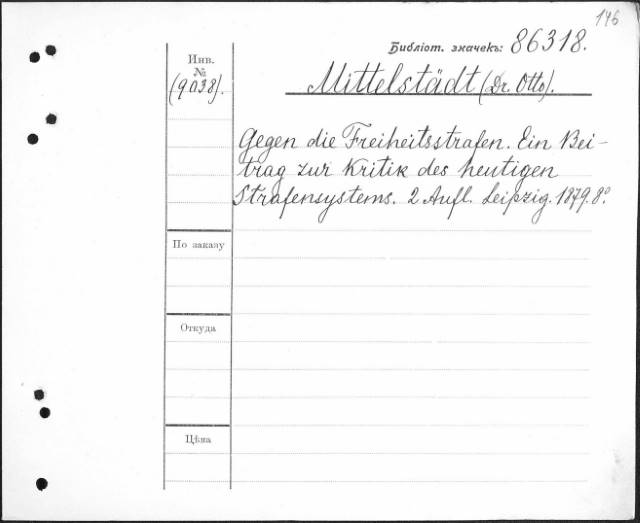 146
Библіот. значекъ: 86318.
Инв.
№
(9038).
Mittelstädt (Dr. Otto).
Gegen die Freiheitsstrafen. Ein Bei-
trag zur Kritik des heutigen
Strafensystems. 2 Aufl. Leipzig. 1879. 8°
По заказу
Откуда
Цѣна